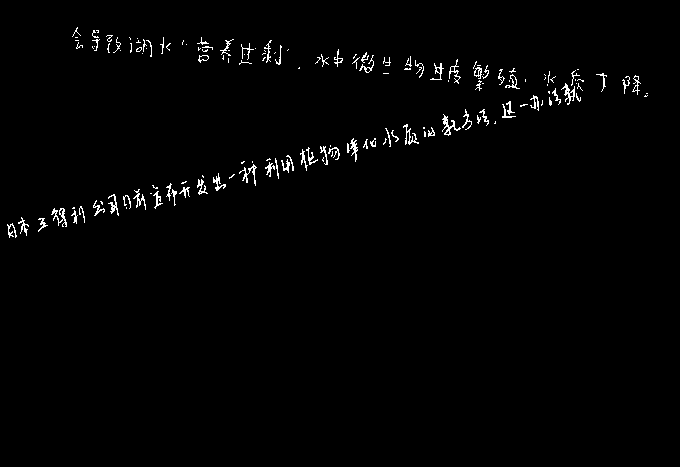 会导致湖水“营养过剩”，水中微生物过度繁殖，水质下降。
日本三得利公司日前宣布开发出一种利用植物净化水质的新方法，这一办法就